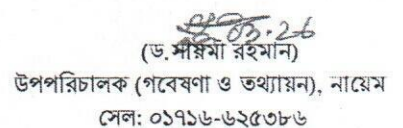 03.26
(ড.সায়মা রহমান)
উপপরিচালক (গবেষণা ও তথ্যায়ন), নায়েম
সেল: ০১৭১৬-৬২৫৩৮৬